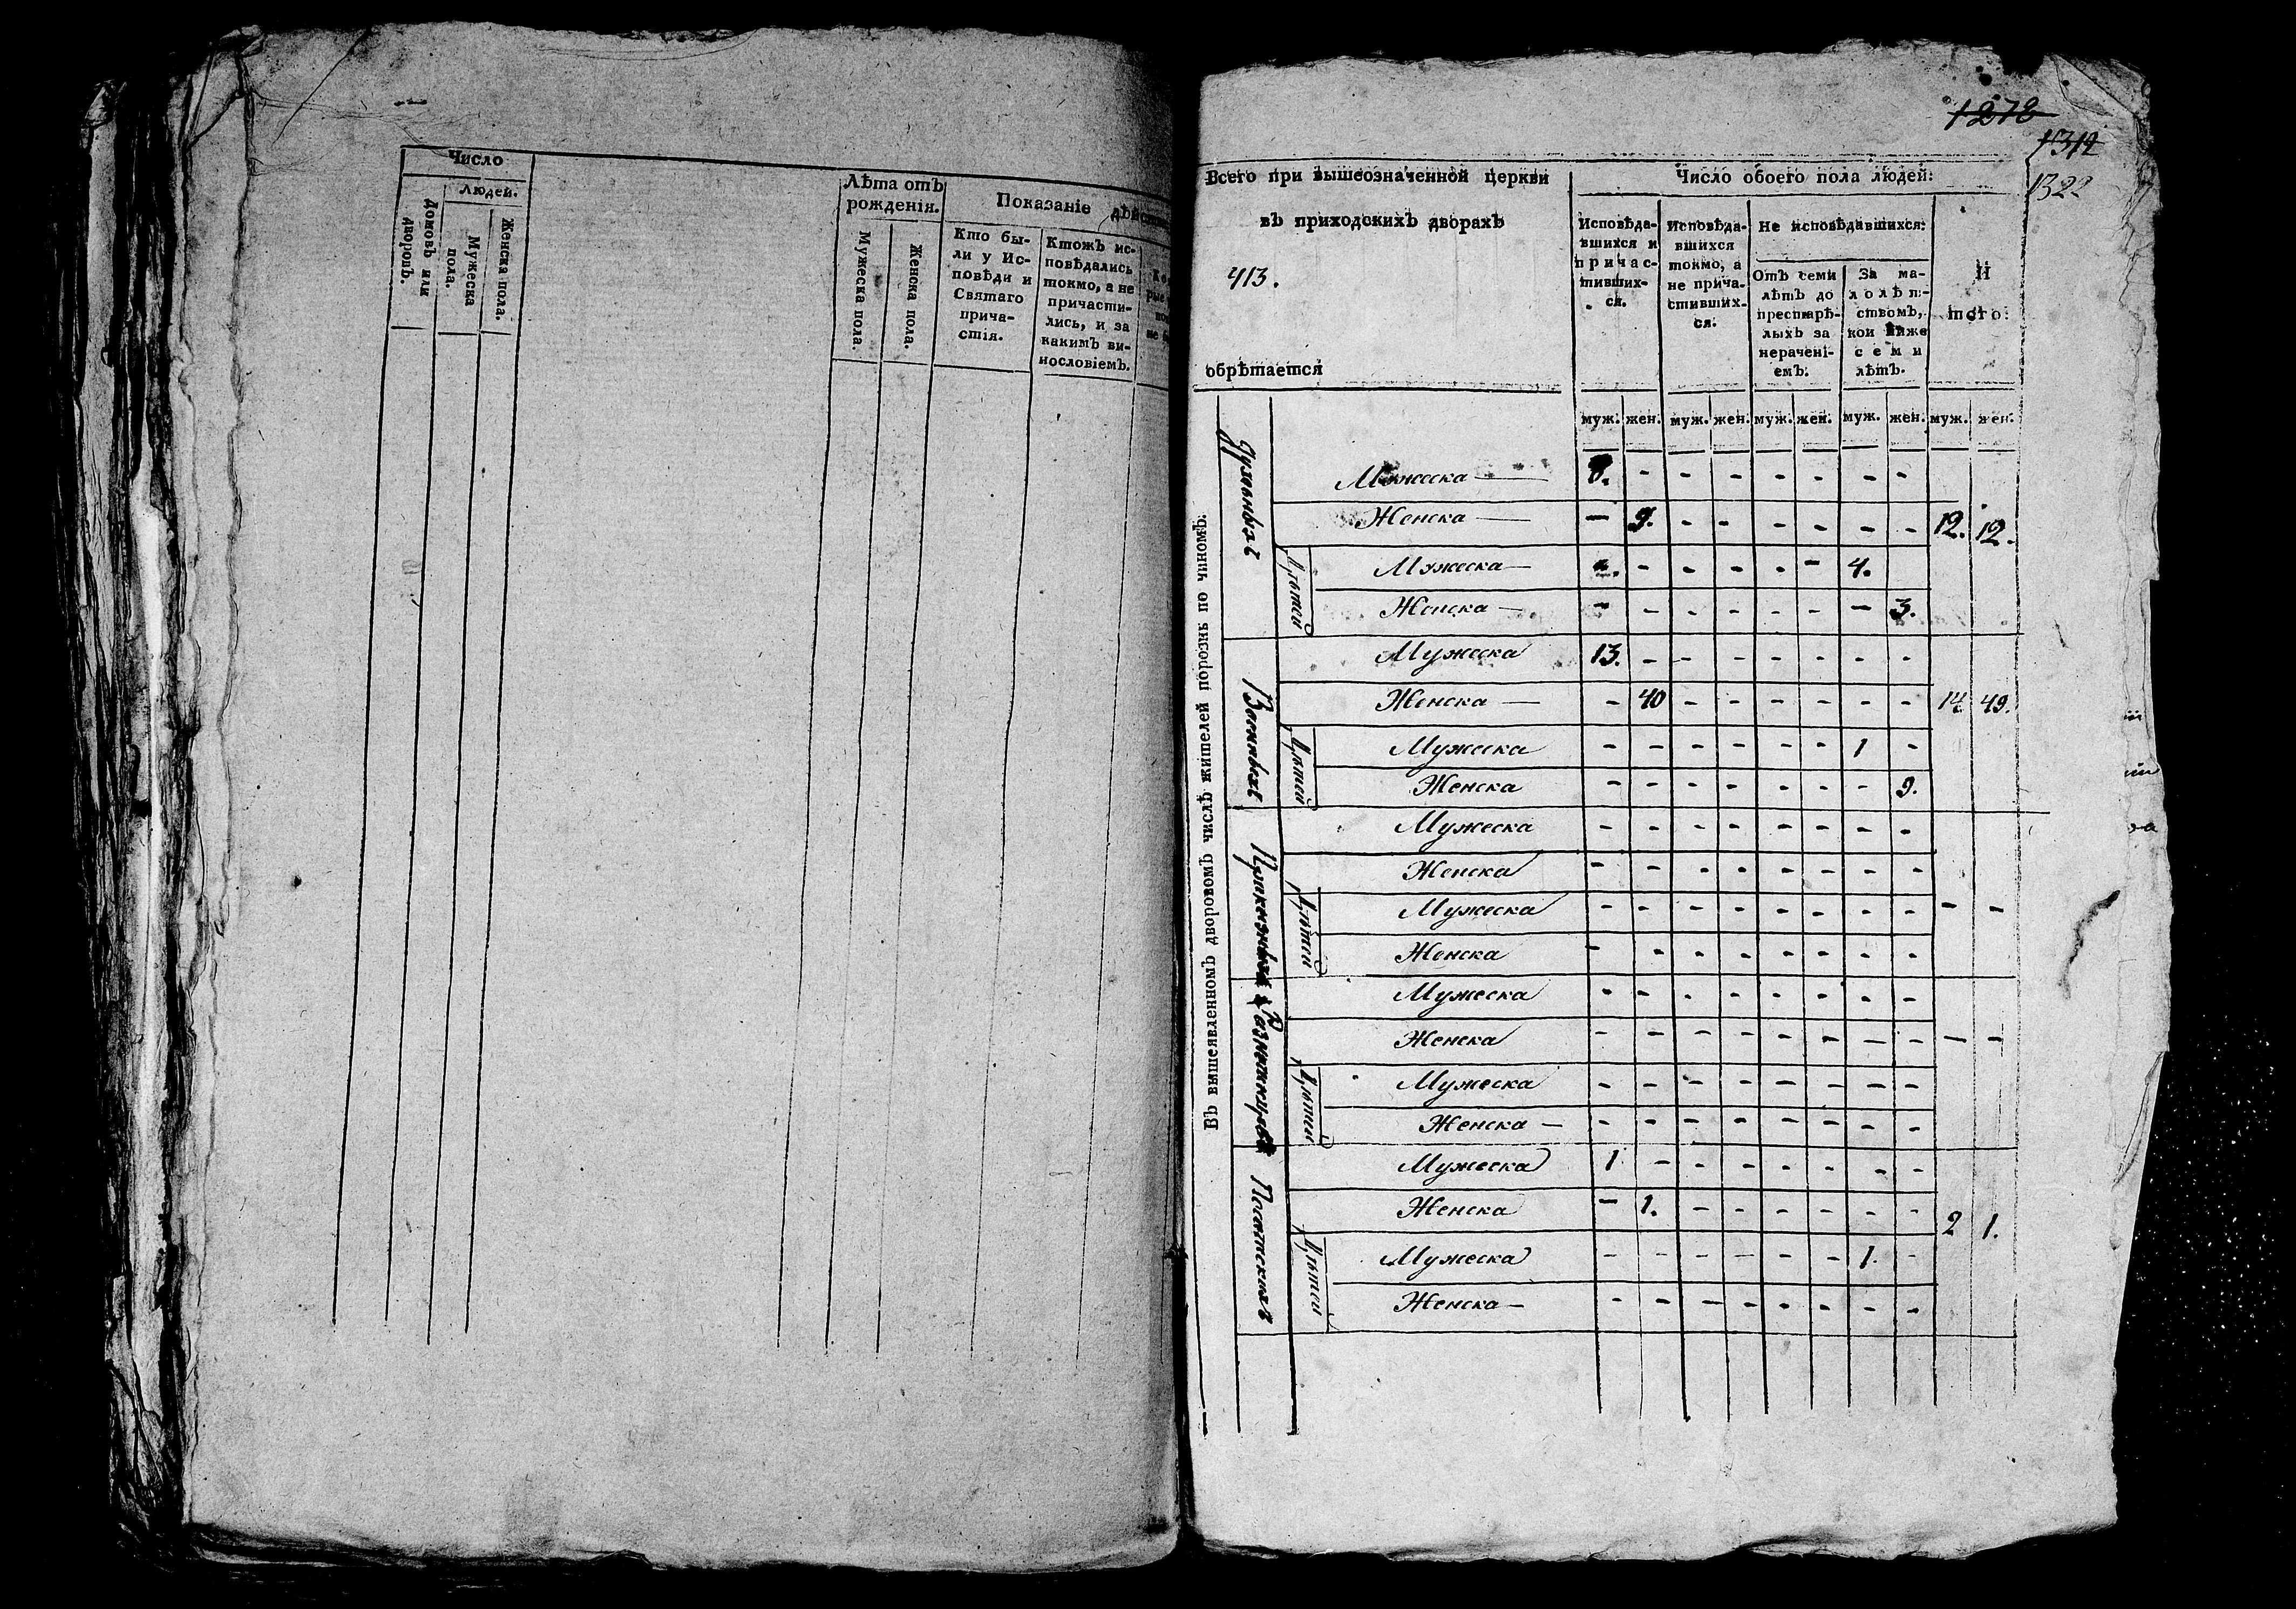 Число
людей.
Домовъ или дворовъ.
Мужеска пола.
Женска пола.
Лѣта отъ
рожденія.
Мужеска пола.
Женска пола.
Показаніе
Кто бы-
ли у Ис-
повѣди и
Святаго
прича-
стія.
Ктожъ ис-
повѣдались
токмо, а не
причасти-
лись, и за
какимъ ви-
нословіемъ.
1278
1312
1322
Всего при вышеозначенной церкви
въ приходскихъ дворахъ
413.
обрѣтается
Число обоего пола людей:
Исповѣда-
вшихся и
причас-
тивших-
ся.
Исповѣда-
вшихся
токмо, а
не прича-
стивших-
ся:
Не исповѣдавшихся:
Отъ семи
лѣтъ до
престарѣ-
лыхъ за
нерачені-
емъ:
За ма-
лолѣт-
ствомъ,
кои ниже
семи
лѣтъ.
И
того:
муж. жен. муж. жен. муж. жен. муж. жен. муж. жен.
Въ вышеявленномъ дворовомъ числѣ жителей порознь по чиномъ:
Духовныхъ
Мужеска — 8. - - - - - - -
Женска — - 9. - - - - - - 12. 12.
Дѣтей
Мужеска — - - - - - 4.
Женска — - - - - - - - 3.
Военныхъ
Мужеска 13. - - - - - - -
Женска — - 40 - - - - - - 14 49.
Дѣтей
Мужеска - - - - - - 1 -
Женска - - - - - - - 9.
Приказныхъ
Мужеска - - - - - - - -
Женска - - - - - - - -
Дѣтей
Мужеска - - - - - - - - - -
Женска - - - - - - - -
Разночинцовъ
Мужеска - - - - - - - -
Женска - - - - - - - - - -
Дѣтей
Мужеска - - - - - - - -
Женска — - - - - - - - -
Посатскихъ
Мужеска 1 - - - - - - -
Женска - 1. - - - - - - 2 1.
Дѣтей
Мужеска - - - - - - 1. -
Женска — - - - - - - - -